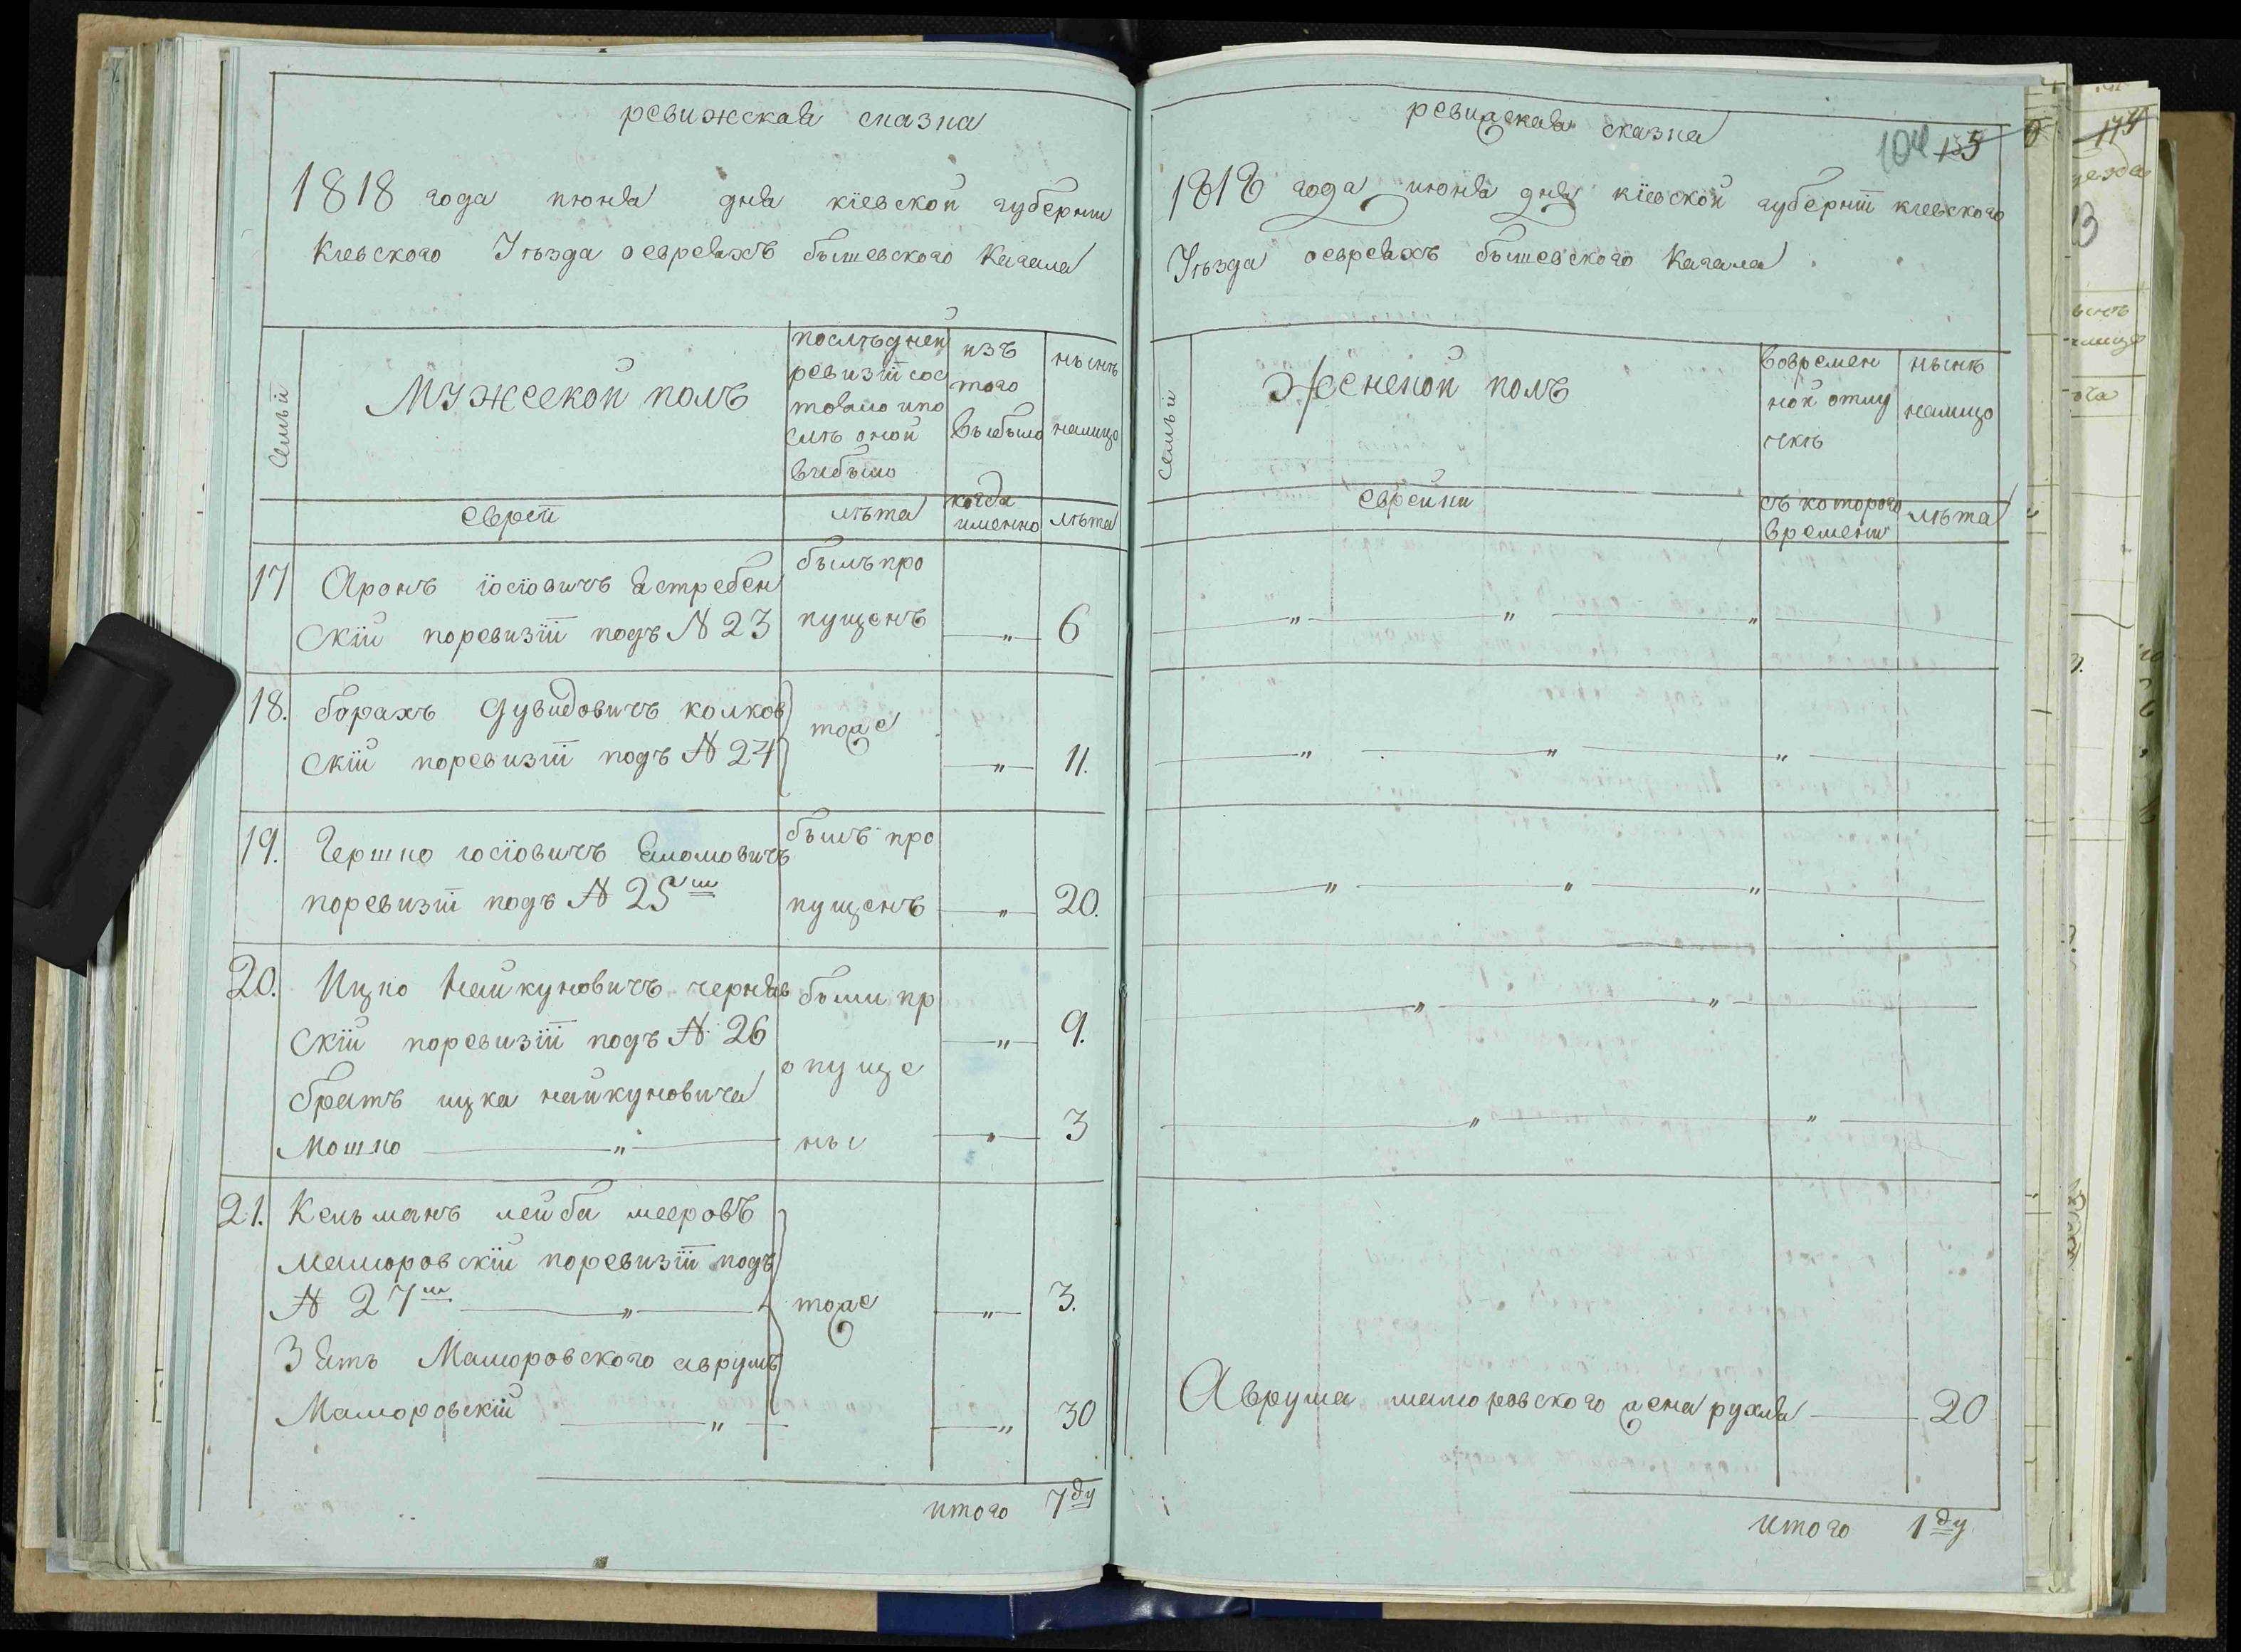 ревижская сказка
1818 года июня дня кіевской губерніи
Кіевского Уъзда оевреяхъ бышевского Кагала
Семьи
Мужеской полъ
последней ревизіи сос тояло ипо слъ оной выбыло
изъ того выбыло
нынъ налицо
евреи
лъта
когда именно
лъта
17 Аронъ іосіовичъ Ястребен былъ про
скій поревизіи подъ № 23 пущенъ — " — 6
18. борахъ Дувидовичъ колков тоже
скій поревизіи подъ № 24 — " — 11.
19. Гершко іосіовичъ былъ про
поревизіи подъ № 25ш пущенъ — " — 20.
20. Ицко Найкуновичъ черняв были пр
скій поревизіи подъ № 26 — " — 9.
опуще
братъ ицка найкуновича
мошко — " — ны — " — 3
21. Кельманъ лейба мееровъ
маморовскій поревизіи подъ
№ 27ш — " — тоже — " — 3.
Зять Маморовского аврумъ
Маморовскій — " — " — 30
итого 7ду
ревижская сказка
104 155
1818 года июня дня кіевской губерніи кіевского
Уъзда оевреяхъ бышевского Кагала
Семьи
Женской полъ
вовремен ной отлу чкъ
нынъ налицо
еврейки
съ которого времени
лъта
— " — " — " —
— " — " — " —
— " — " — " —
— " — " —
— " — " —
Аврума маморовского жена рухля — 20
итого 1ду